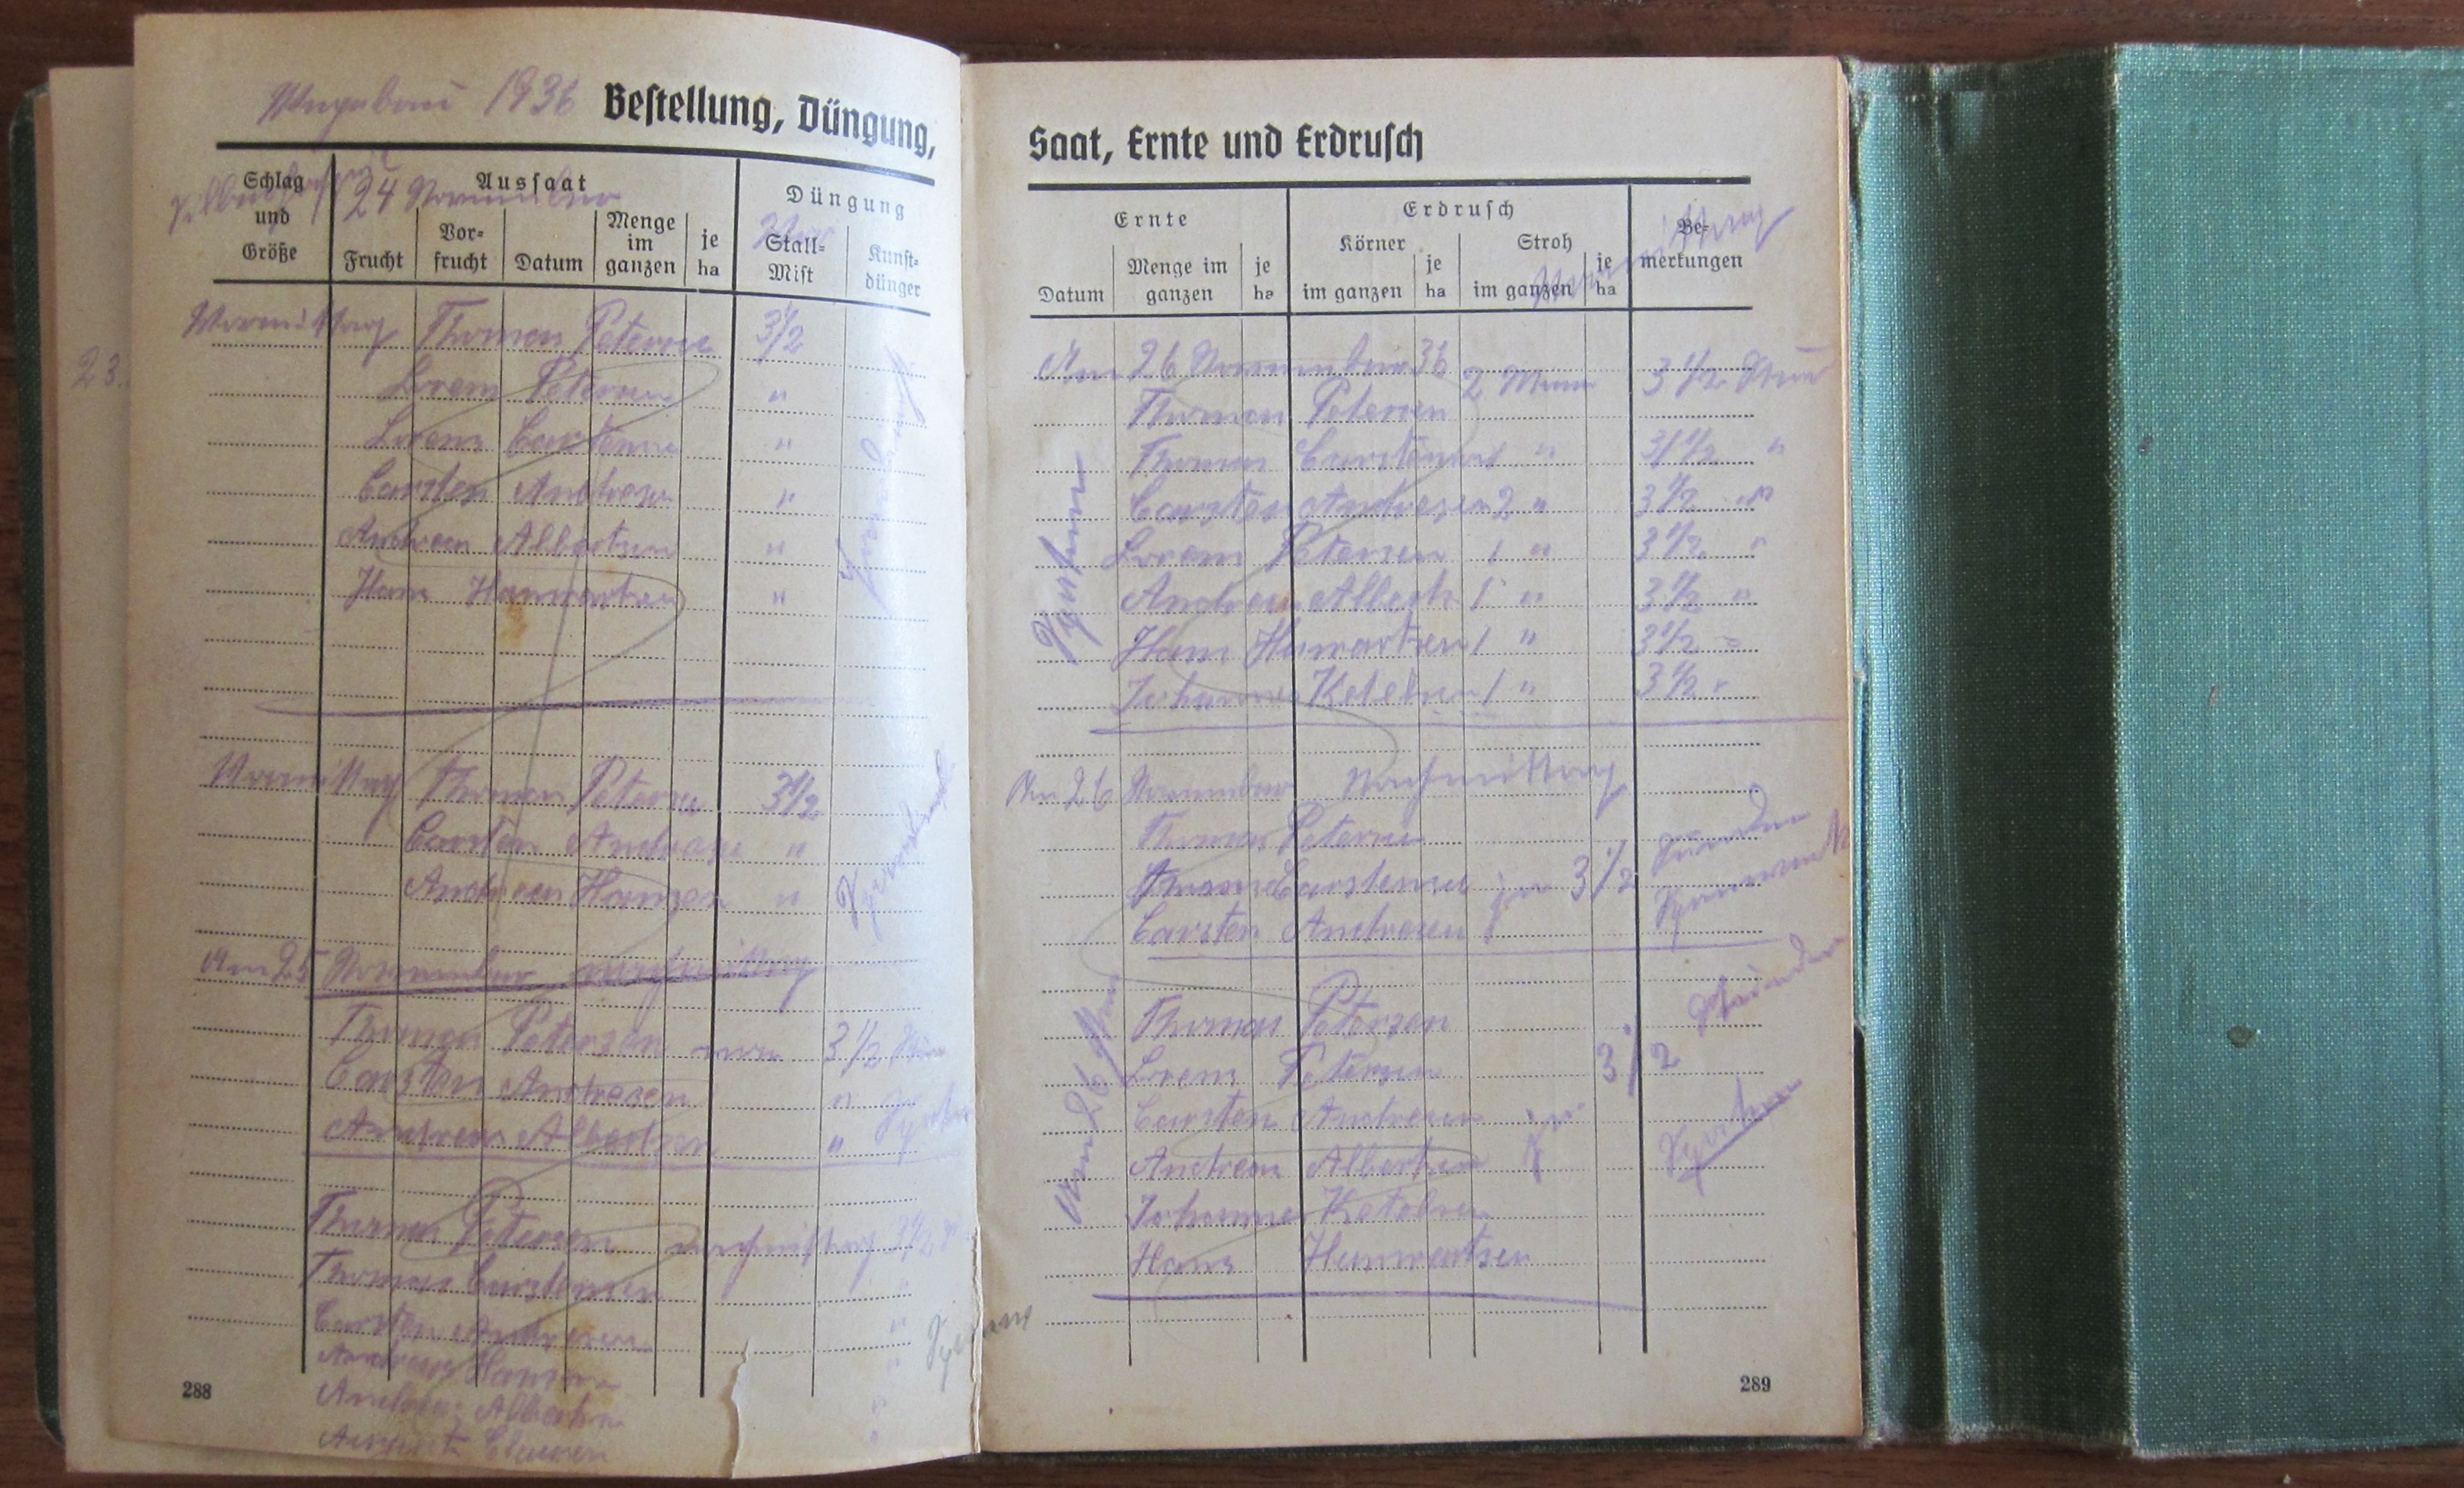 Wegebau 1936 Bestellung, Düngung,
Schlag und Größe
Aussaat
24 November
Frucht
Vor-frucht
Datum
Menge im ganzen
je ha
Düngung
Stall-Mist
Kunst-dünger
Vormittag Thomas Petersen 3 1/2
Lorenz Petersen "
Lorenz Carstensen "
Carsten Andresen "
Andreas Albertsen "
Hans Hanwertsen "
Vormittag Thomas Petersen 3 1/2
Carsten Andresen "
Andreas Hansen "
Am 25 November nachmittag
Thomas Petersen 3 1/2
Carsten Andresen "
Andreas Albertsen "
Thomas Petersen nachmittag 3 1/2
Thomas Carstensen "
Carsten Andresen "
Andreas Hansen "
Andreas Albertsen "
August Clausen "
288
23.
Saat, Ernte und Erdrusch
Ernte
Datum
Menge im ganzen
je ha
Erdrusch
Körner
im ganzen
je ha
Stroh
im ganzen
je ha
Be-merkungen
Vormittag
Am 26 November 36
Thomas Petersen 2 Mann 3 1/2
Thomas Carstensen 1 " 3 1/2 "
Carsten Andresen 2 " 3 1/2 "
Lorenz Petersen 1 " 3 1/2 "
Andreas Albertsen 1 " 3 1/2 "
Hans Hanwertsen 1 " 3 1/2 "
Johannes Ketelsen 1 " 3 1/2 "
Am 26 November Nachmittag
Thomas Petersen
Thomas Carstensen je 3 1/2 Stunden
Carsten Andresen
Thomas Petersen
Lorenz Petersen 3 1/2 Stunden
Carsten Andresen je
Andreas Albertsen
Johannes Ketelsen
Hans Hanwertsen
289